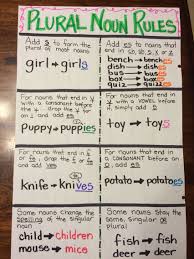 PLURAL NOUN RULES
Add s to form the
plural of most nouns
girl → girls
Add es to nouns that
end in
bench → benches
dish → dishes
bus → buses
box → boxes
quiz → quizzes
For nouns that end in y
with a consonant before
the y, drop the y and
add ies
Puppy → puppies
For nouns that end in y
with a vowel before
simply add s
toy → toys
For nouns that end in f
or fe, drop the f or fe
and add ves
knife → knives
For nouns that end in o
with a consonant before
add es
potato → potatoes
Some nouns change
the spelling of the singular
noun
child → children
mouse → mice
Some nouns stay the
same singular or
plural
fish → fish
deer → deer